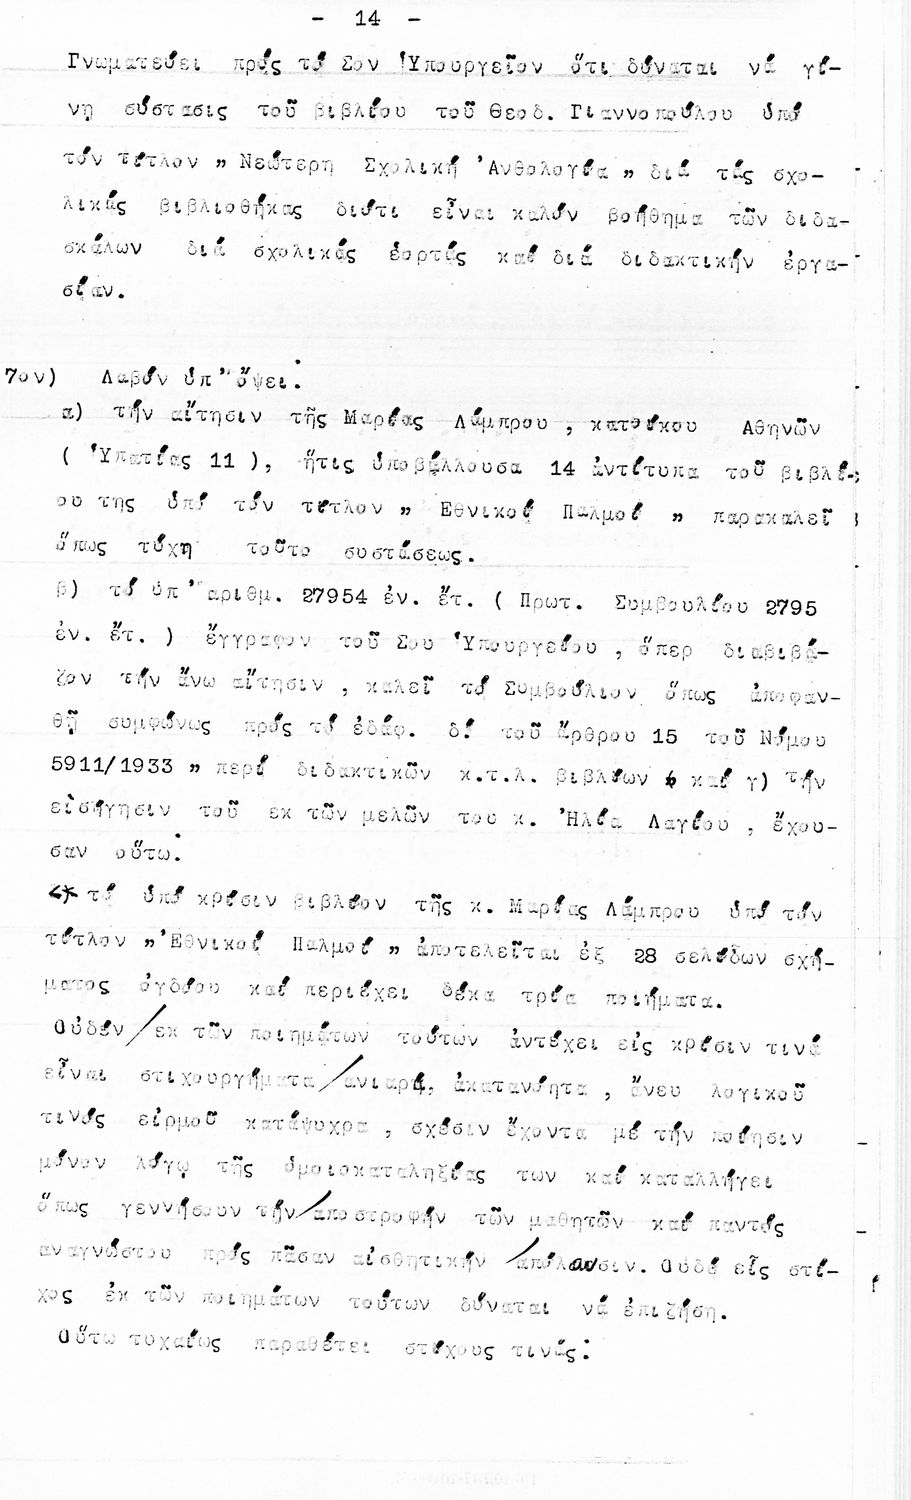 - 14 -
Γνωματεύει πρός τό Σον Ὑπουργεῖον ὅτι δύναται νά γί-
νῃ σύστασις τοῦ βιβλίου τοῦ Θεοδ. Γιαννοπούλου ὑπό
τόν τίτλον " Νεώτερη Σχολική Ἀνθολογία " διά τάς σχο-
λικάς βιβλιοθήκας διότι εἶναι καλόν βοήθημα τῶν διδα-
σκάλων διά σχολικάς ἑορτάς καί διά διδακτικήν ἐργα-
σίαν.
7ον) Λαβόν ὑπ' ὄψει:
α) τήν αἴτησιν τῆς Μαρίας Λάμπρου , κατοίκου Αθηνῶν
( Ὑπατίας 11 ), ἥτις ὑποβάλλουσα 14 ἀντίτυπα τοῦ βιβλί-
ου της ὑπό τόν τίτλον " Εθνικοί Παλμοί " παρακαλεῖ
ὅπως τύχῃ τοῦτο συστάσεως.
β) τό ὑπ' ἀριθμ. 27954 ἐν. ἔτ. ( Πρωτ. Συμβουλίου 2795
ἐν. ἔτ. ) ἔγγραφον τοῦ Σου Ὑπουργείου , ὅπερ διαβιβά-
ζον τήν ἄνω αἴτησιν , καλεῖ τό Συμβούλιον ὅπως ἀποφαν-
θῇ συμφώνως πρός τό ἐδάφ. δ. τοῦ ἄρθρου 15 τοῦ Νόμου
5911/1933 " περί διδακτικῶν κ.τ.λ. βιβλίων καί γ) τήν
εἰσήγησιν τοῦ εκ τῶν μελῶν του κ. Ἠλία Λαγίου , ἔχου-
σαν οὕτω:
τό ὑπό κρίσιν βιβλίον τῆς κ. Μαρίας Λάμπρου ὑπό τόν
τίτλον "Ἐθνικοί Παλμοί " ἀποτελεῖται ἐξ 28 σελίδων σχή-
ματος ὀγδόου καί περιέχει δέκα τρία ποιήματα.
Οὐδέν/εκ τῶν ποιημάτων τούτων ἀντέχει εἰς κρίσιν τινά
εἶναι στιχουργήματα/ανιαρά, ἀκατανόητα , ἄνευ λογικοῦ
τινός εἱρμοῦ κατάψυχρα , σχέσιν ἔχοντα μέ τήν ποίησιν
μόνον λόγῳ τῆς ὁμοιοκαταληξίας των καί καταλλήγει
ὅπως γεννήσουν τήν/αποστροφήν τῶν μαθητῶν καί παντός
αναγνώστου πρός πᾶσαν αἰσθητικήν /απόλαυσιν. Οὐδέ εἷς στί-
χος ἐκ τῶν ποιημάτων τούτων δύναται νά ἐπιζήσῃ.
Οὕτω τυχαίως παραθέτει στίχους τινάς: